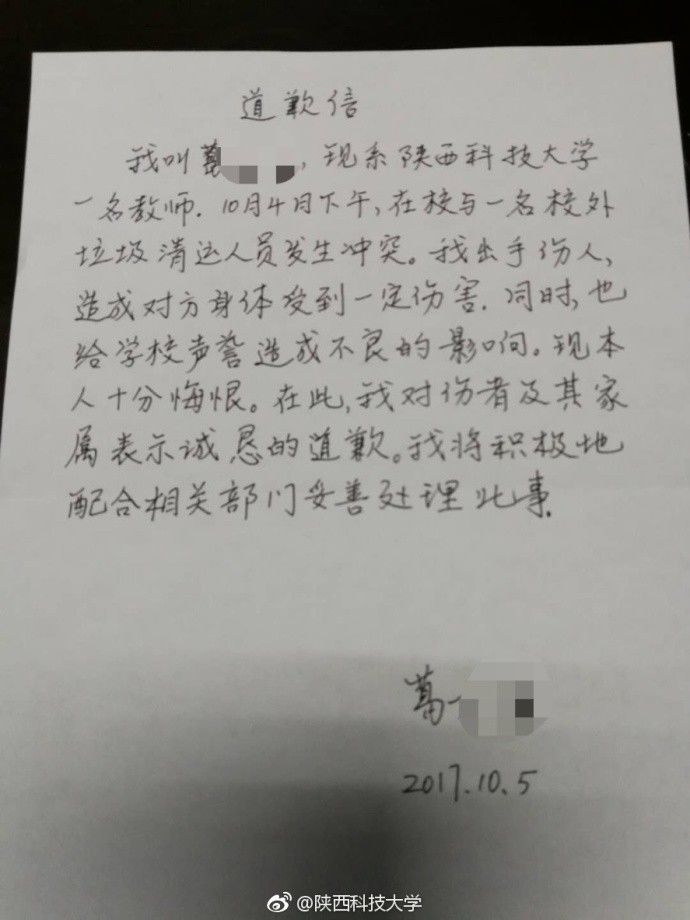 道歉信
我叫葛，现系陕西科技大学
一名教师．10月4日下午，在校与一名校外
垃圾清运人员发生冲突。我出手伤人，
造成对方身体受到一定伤害．同时，也
给学校声誉造成不良的影响。现本
人十分悔恨。在此，我对伤者及其家
属表示诚恳的道歉。我将积极地
配合相关部门妥善处理此事．
葛
2017.10.5
@陕西科技大学